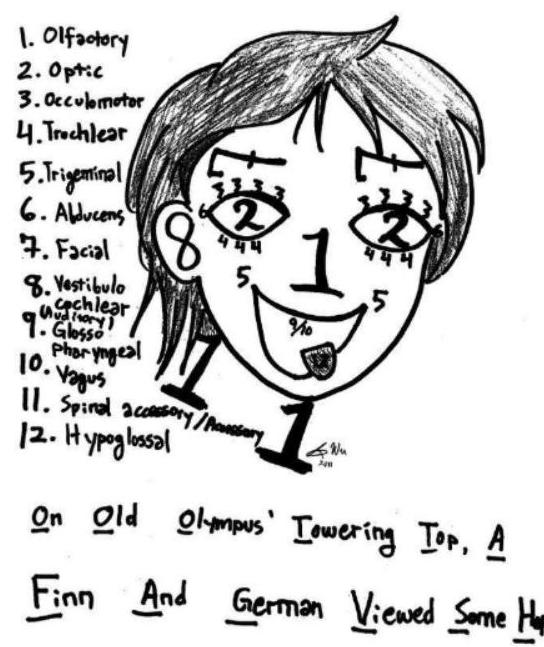 1. Olfactory
2. Optic
3. Occulomotor
4. Trochlear
5. Trigeminal
6. Abducens
7. Facial
8. Vestibulo
cochlear
(Auditory)
9. Glosso
pharyngeal
10. Vagus
11. Spinal accessory/Accessory
12. Hypoglossal
7 7
3 3 3 3 3 3 3 3
6 2 2 6
4 4 4 4 4 4
8 1
5 5
9/10
1 1
Wu
2011
On Old Olympus' Towering Top, A
Finn And German Viewed Some